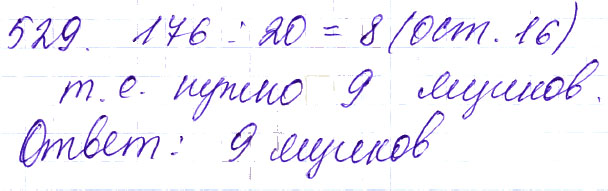 529. 176 : 20 = 8 (ост. 16)
т.е. нужно 9 ящиков.
Ответ: 9 ящиков